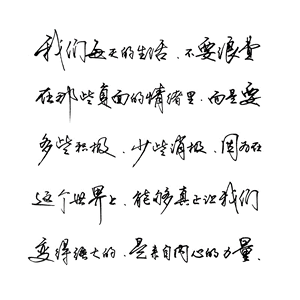 我们每天的生活，不要浪费
在那些负面的情绪里，而是要
多些积极，少些消极，因为在
这个世界上，能够真正让我们
变得强大的，是来自内心的力量。